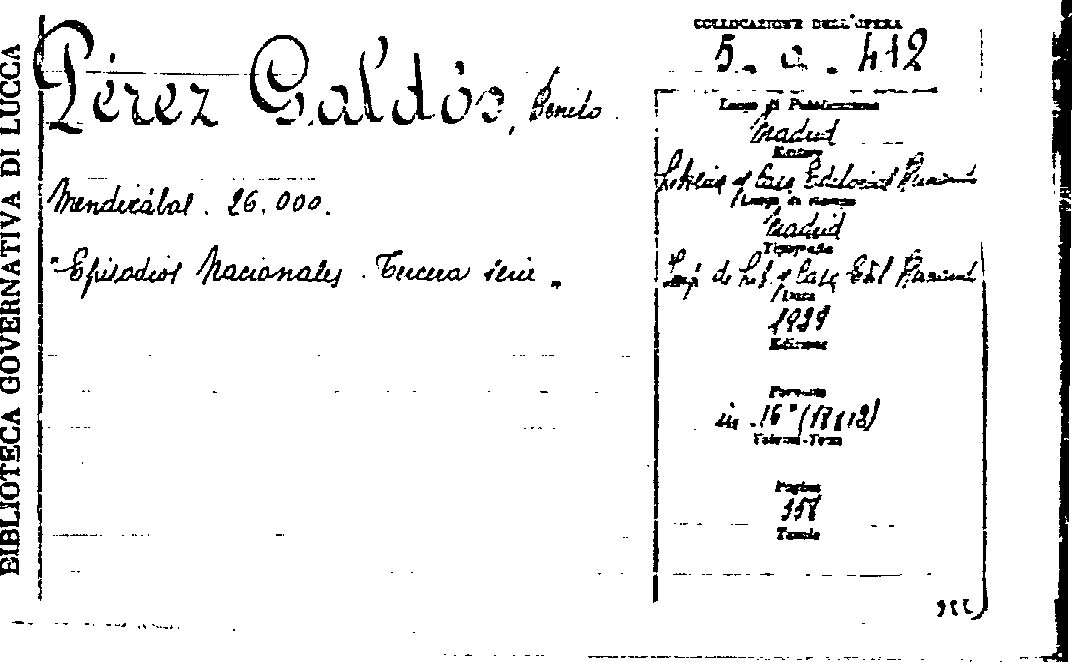 BIBLIOTECA GOVERNATIVA DI LUCCA
COLLOCAZIONE DELL'OPERA
5. a. 412
Pérez Galdós, Benito.
Mendizábal. 26.000.
"Episodios Nacionales. Tercera serie"
Luogo di Pubblicazione
Madrid
Editore
Librería y Casa Editorial Hernando
Luogo di stampa
Madrid
Tipografia
Imp. de Lib. y Casa Edit. Hernando
Data
Edizione
Formato
in 16° (18x12)
Volumi-Tomi
Pagine
Tavole